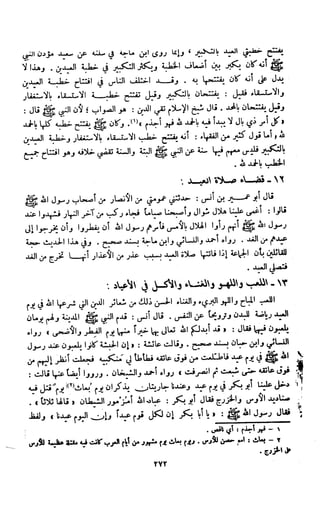 يفتتح خطبتي العيد بالتكبير، وإنما روى ابن ماجه في سننه عن سعيد مؤذن النبي
ﷺ أنه كان يكبر بين أضعاف الخطبة ويكثر التكبير في خطبة العيدين. وهذا لا
يدل على أنه كان يفتتحها به. وقد اختلف الناس في افتتاح خطبة العيدين
والاستسقاء فقيل: يفتتحان بالتكبير وقيل تفتتح خطبة الاستسقاء بالاستغفار
وقيل يفتتحان بالحمد. قال شيخ الإسلام تقي الدين: هو الصواب؛ لأن النبي ﷺ قال:
« كل أمر ذي بال لا يبدأ فيه بالحمد لله فهو أجذم »(١). وكان ﷺ يفتتح خطبه كلها بالحمد
لله، وأما قول كثير من الفقهاء: أنه يفتتح خطب الاستسقاء بالاستغفار وخطبة العيدين
بالتكبير فليس معهم فيها سنة عن النبي ﷺ البتة والسنة تقضي خلافه وهو افتتاح جميع
الخطب بالحمد لله.
١٢ - قضاء صلاة العيد:
قال أبو عمير بن أنس: حدثني عمومتي من الأنصار من أصحاب رسول الله ﷺ
قالوا: أغمي علينا هلال شوال وأصبحنا صياماً فجاء ركب من آخر النهار فشهدوا عند
رسول الله ﷺ أنهم رأوا الهلال بالأمس فأمرهم رسول الله أن يفطروا وأن يخرجوا إلى
عيدهم من الغد. رواه أحمد والنسائي وابن ماجة بسند صحيح. وفي هذا الحديث حجة
للقائلين بأن الجماعة إذا فاتتها صلاة العيد بسبب عذر من الأعذار أنها تخرج من الغد
فتصلي العيد.
١٣ - اللعب واللهو والغناء والأكل في الأعياد:
اللعب المباح واللهو البريء والغناء الحسن ذلك من شعائر الدين التي شرعها الله في يوم
العيد رياضة للبدن وترويحاً عن النفس. قال أنس: قدم النبي ﷺ المدينة ولهم يومان
يلعبون فيهما فقال: « قد أبدلكم الله تعالى بهما خيراً منهما يوم الفطر والأضحى » رواه
النسائي وابن حبان بسند صحيح. وقالت عائشة: « إن الحبشة كانوا يلعبون عند رسول
الله ﷺ في يوم عيد فاطلعت من فوق عاتقه فطأطأ لي منكبيه فجعلت أنظر إليهم من
فوق عاتقه حتى شبعت ثم انصرفت » رواه أحمد والشيخان. ورووا أيضاً عنها قالت:
دخل علينا أبو بكر في يوم عيد وعندنا جاريتان يذكران يوم بُعاث(٢) يوم قتل فيه
صناديد الأوس والخزرج فقال أبو بكر: عباد الله أمزمور الشيطان « قالها ثلاثاً ».
فقال رسول الله ﷺ: « يا أبا بكر إن لكل قوم عيداً وإن اليوم عيدنا » ولفظ
١ - فهو أجذم: أي ناقص.
٢ - بعاث: اسم حصن للأوس. ويوم بعاث يوم مشهور من أيام العرب كانت فيه مقتلة عظيمة للأوس
على الخزرج.
٢٧٢